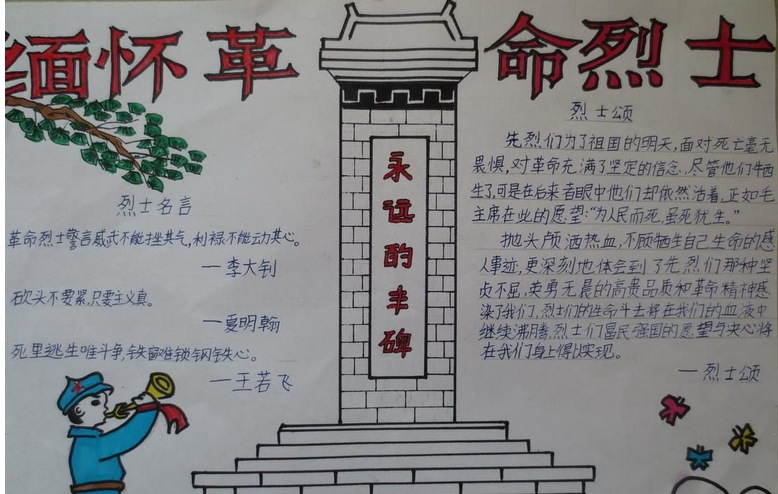 缅怀革命烈士
烈士名言
革命烈士警言威武不能挫其气，利禄不能动其心。
—李大钊
砍头不要紧，只要主义真。
—夏明翰
死里逃生唯斗争，铁窗难锁钢铁心。
—王若飞
永远的丰碑
烈士颂
先烈们为了祖国的明天，面对死亡毫无
畏惧，对革命充满了坚定的信念，尽管他们牺
生了，可是在后来者眼中他们却依然活着。正如毛
主席在此的愿望：“为人民而死，虽死犹生。”
抛头颅洒热血，不顾牺生自己生命的感
人事迹，更深刻地体会到了先烈们那种坚
贞不屈，英勇无畏的高贵品质和革命精神感
染了我们，烈士们的生命斗去将在我们的血液中
继续沸腾，烈士们富民强国的愿望与决心将
在我们身上得以实现。
—烈士颂